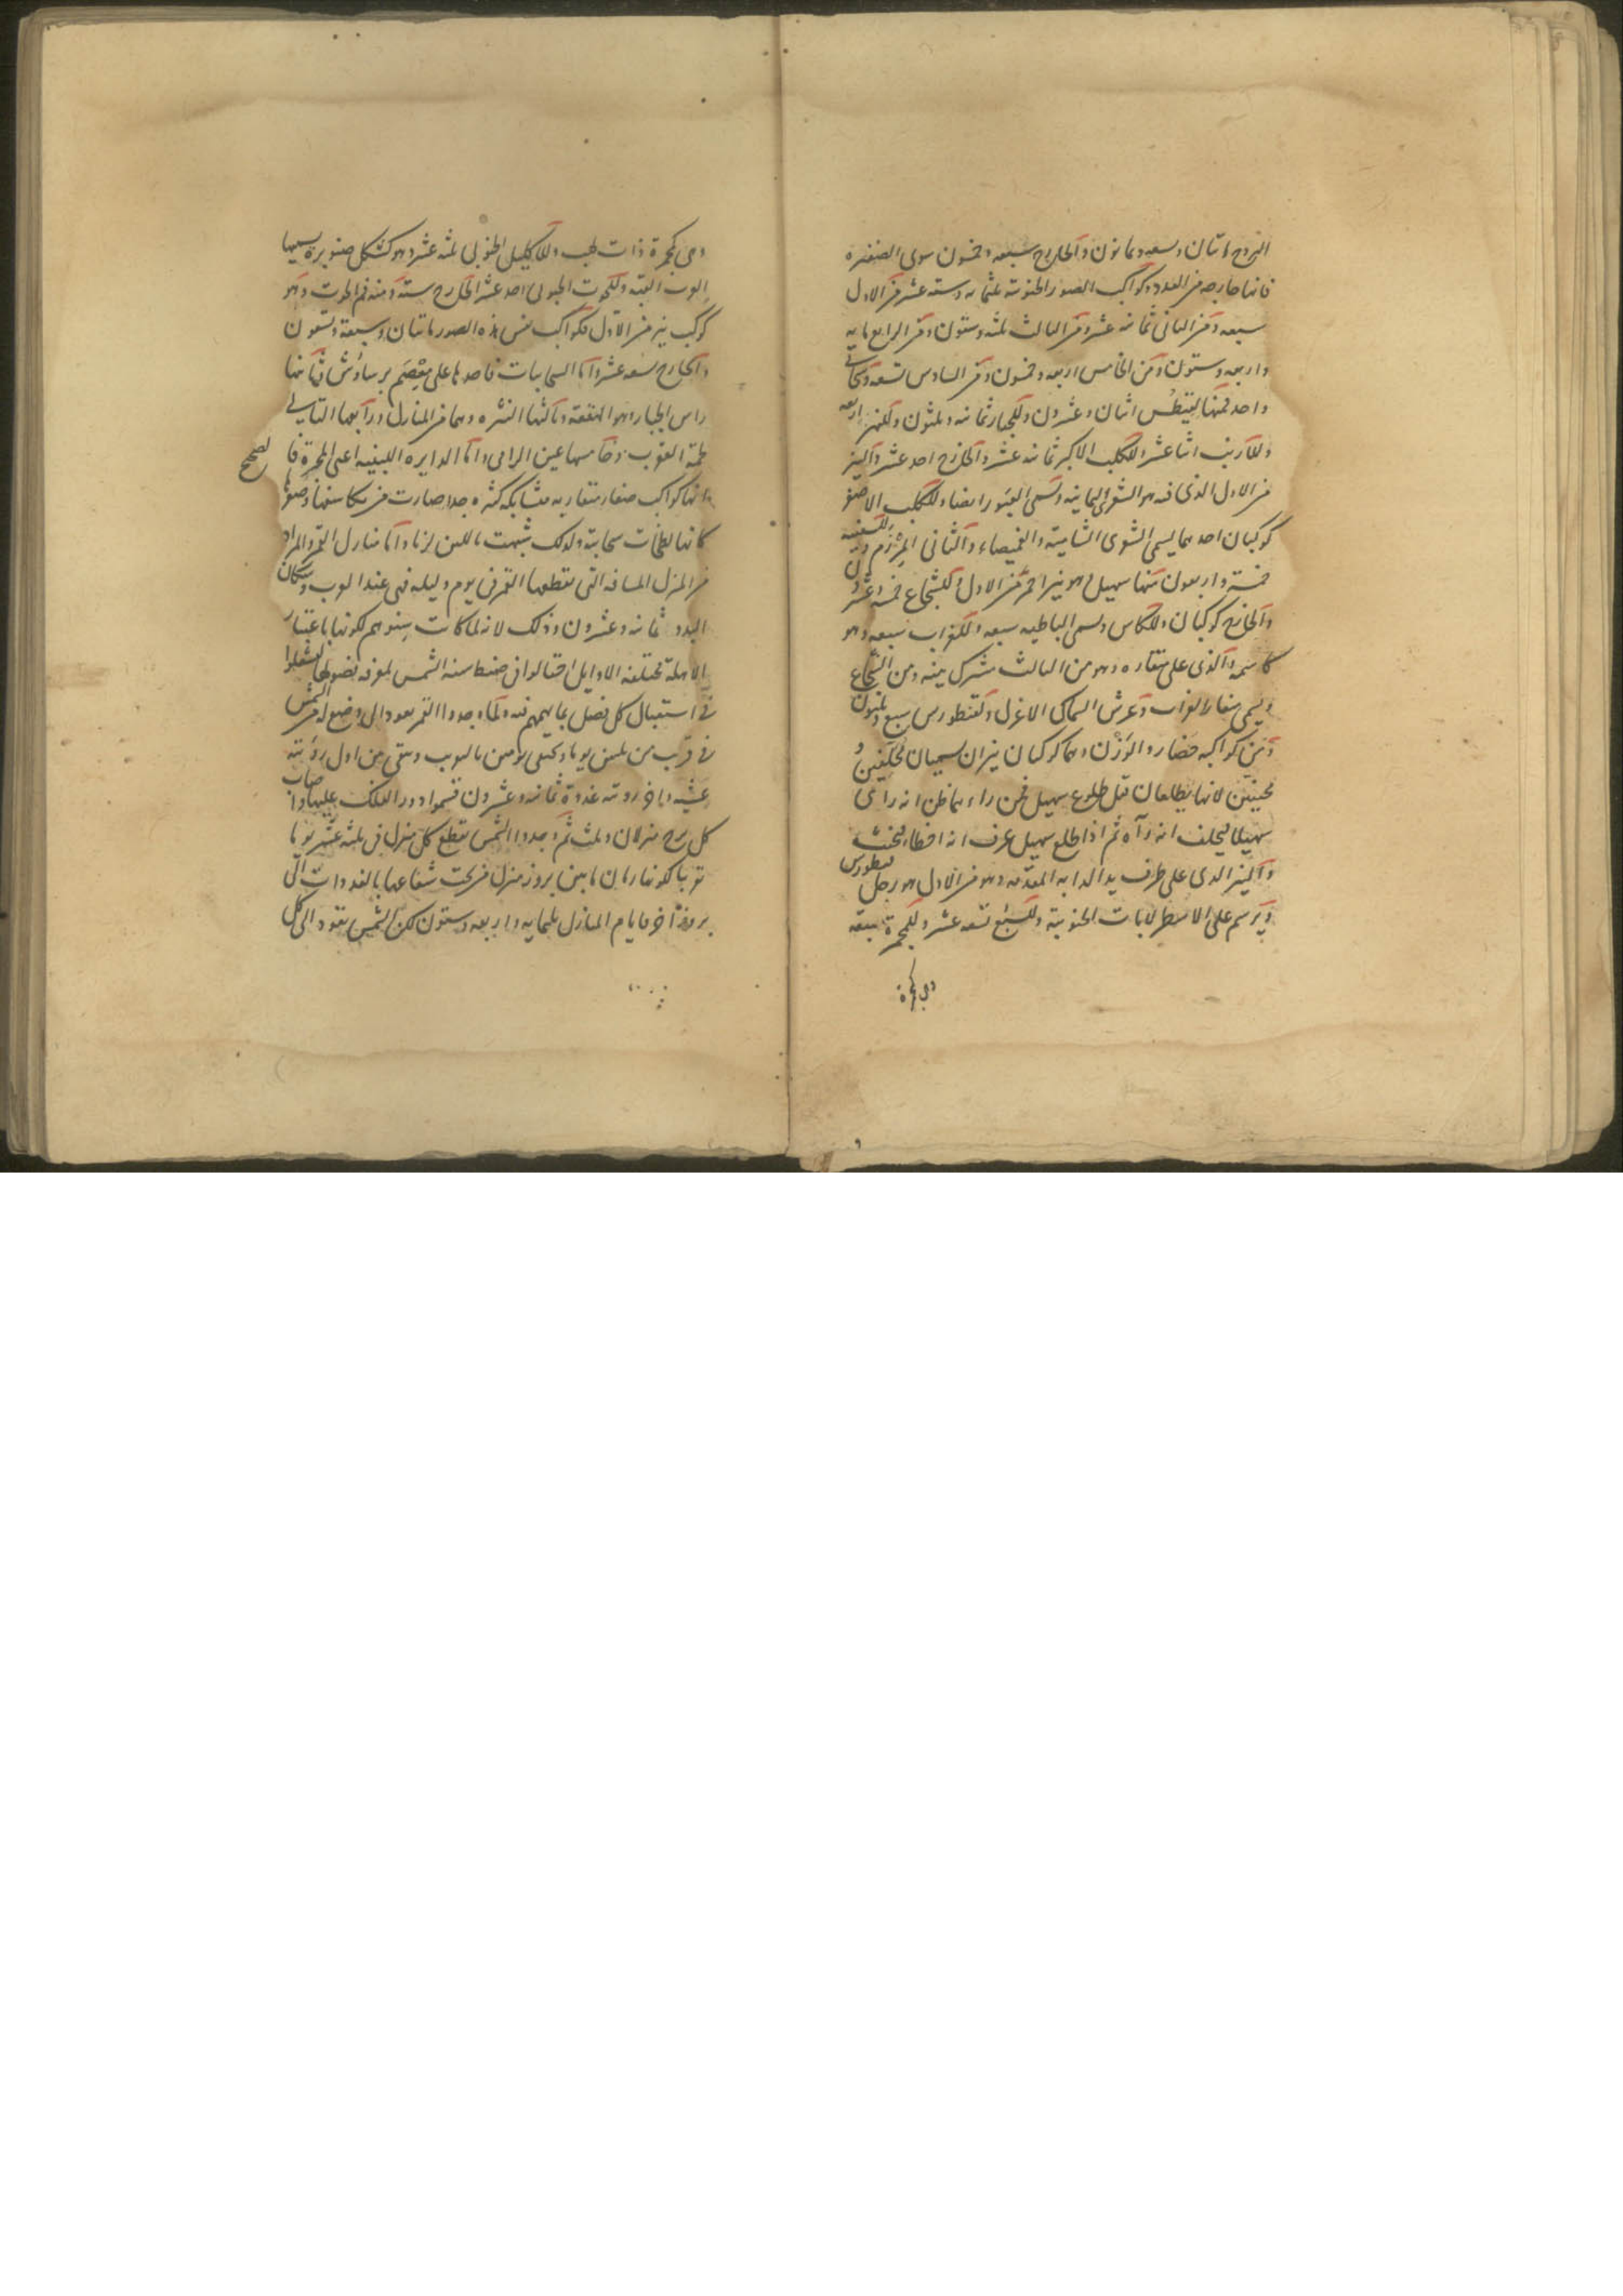 البروج مائتان وسبعه وثمانون والخارج سبعه وخمسون سوى الضفيره
فانها خارجه من العدد وكواكب الصور الجنوبيه ثلثمائه وسته عشر من الاول
سبعه ومن الثانى ثمانيه عشر ومن الثالث ثلثه وستون ومن الرابع مايه
واربعه وستون ومن الخامس اربعه وخمسون ومن السادس تسعه وسحابى
واحد فمنها لقيطس اثنان وعشرون وللجبار ثمانيه وثلثون وللنهر اربعه
وللارنب اثنا عشر وللكلب الاكبر ثمانيه عشر والخارج احد عشر والنير
من الاول الذى فيه هو الشعرى اليمانيه وتسمى العبور ايضا وللكلب الاصغر
كوكبان احدهما يسمى الشعرى الشاميته والغميصاء والثانى المرزم وللسفينه
خمسة واربعون منها سهيل وهو نير احمر من الاول وللشجاع خمسه وعشرون
والخارج كوكبان وللكاس وتسمى الباطيه سبعه وللغراب سبعه وهو
كاسمه والذى على منقاره وهو من الثالث مشترك بينه ومن الشجاع
ويسمى منقار الغراب وعرش السماك الاعزل ولقنطورس سبع وثلثون
ومن كواكبه حضار والوزن وهما كوكبان نيران يسميان محلفين و
محنثين لانهما يطلعان قبل طلوع سهيل فمن راءهما ظن انه راى
سهيلا فيحلف انه رآه ثم اذا طلع سهيل عرف انه اخطا فيحنث
والنير الذى على طرف يد الدابه المقدمه وهو من الاول هو رجل قنطورس
ويرسم على الاسطرلابات الجنوبية وللسبع تسعه عشر وللمجمرة سبعه
وهى كمجمرة
وهى كمجمرة ذات لهب وللاكليل الجنوبى ثلثه عشر وهو كشكل صنوبرة يسميها
العرب القبه وللحوت الجنوبى احد عشر والخارج سته ومنه فم الحوت وهو
كوكب نير من الاول فكواكب نفس هذه الصور مائتان وسبعة وتسعون
والخارج تسعه عشر واما السحابيات فاحدها على معصم برساوش وثانيها
راس الجبار وهو الهقعة وثالثها النثره وهما من المنازل ورابعها التالى
لحمة العقرب وخامسها عين الرامى واما الدايره اللبنيه اعنى المجرة فا
لصحيح
انها كواكب صغار متقاربه متشابكه كثيره جدا صارت من تكاثفها وصغرها
كانها لطخات سحابية ولذلك شبهت باللبن لونا واما منازل القمر والمراد
من المنزل المسافه التى يقطعها القمر فى يوم وليله فهى عند العرب وسكان
البدو ثمانيه وعشرون وذلك لانه لما كانت سنوهم لكونها باعتبار
الاهله مختلفه الاوايل احتالوا فى ضبط سنه الشمس لمعرفه فصولها ليشتغلوا
فى استقبال كل فصل بما يهمهم فيه ولما وجدوا القمر يعود الى وضع له من الشمس
فى قرب من ثلثين يوما ويختفى يومين بالتقريب ويبقى من اول رؤيته
عشيه واخر رويته غدوة ثمانيه وعشرون قسموا دور الفلك عليها واصاب
كل برج منزلان وثلث ثم وجدوا الشمس تقطع كل منزل فى ثلثه عشر يوما
تقريبا لكون زمان ما بين بروز منزل من تحت شعاعها بالغدوات الى
بروز آخر فايام المنازل ثلثمايه واربعه وستون لكن الشمس تعود الى كل